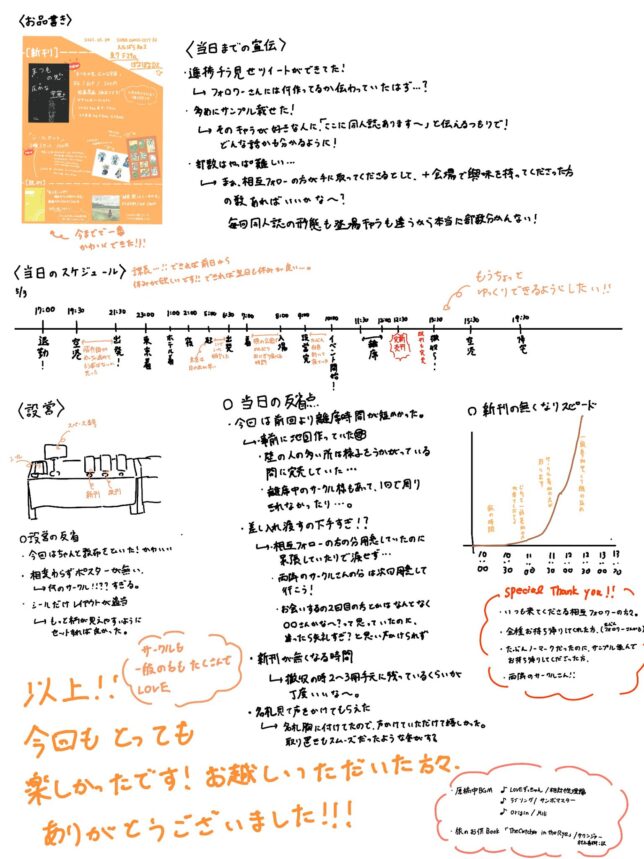 〈お品書き〉
[新刊]
[既刊]
今までで一番
かわいくできた!!!
〈当日までの宣伝〉
・進捗チラ見せツイートができてた!
↳フォロワーさんには何作ってるか伝わっていたはず…?
・多めにサンプル載せた!
↳そのキャラが好きな人に、「ここに同人誌あります〜」と伝えるつもりで!
どんな話かも分かるように!
・部数はやっぱ難しい…
↳まぁ、相互フォローの方が手に取ってくださるとして、+会場で興味を持ってくださった方
の数あればいいかな〜?
毎回同人誌の形態も登場キャラも違うから本当に部数分かんない!
〈当日のスケジュール〉
課長…!!できれば前日から
休みが欲しいです!!できれば翌日も休みが良い…。
もうちょっと
ゆっくりできるようにしたい!!
5/3
17:00 19:30 21:30 23:30 1:00 2:00 5:00 6:30 7:00 8:00 9:00 10:00 11:30 12:30 13:30 15:30
退勤!
空港
出発!
東京着
ホテル着
寝
起
出発
着
入場
設営完
イベント開始!
離席
新刊
完売
撤収…
空港
帰宅
〈設営〉
スペース番号
シール
新刊
既刊
○設営の反省
・今回はちゃんと敷布をしいた!かわいい
・相変わらずポスターが無い。
↳何のサークル!!??すぎる。
・シールだけレイアウトが適当
↳もっと柄が見えやすいように
セットすれば良かった。
○ 当日の反省点
・今回は前回より離席時間が短めかった。
↳事前に地図作っていた
・壁の人の多い所は様子をうかがっている
間に完売していた…
・離席中のサークル様もあって、1回で周り
きれなかったり…。
・差し入れ渡すの下手すぎ!?
↳・相互フォローの方の分用意していたのに
呆隈していたりで渡せず…
・両隣のサークルさんの分は次回用意して
行こう!
・お会いするの2回目の方とかはなんとなく
〇〇さんかな〜?って思っていたのに、
違ったら失礼すぎ?と思い声かけられず
・新刊が無くなる時間
↳撤収の時2〜3冊手元に残っているくらいが
丁度いいな〜。
・名札見て声をかけてもらえた
↳名札胸に付けてたので、声かけていただけて嬉しかった。
取り置きもスムーズだったような気がする
○ 新刊の無くなりスピード
10:00 10:30 11:00 11:30 12:00 12:30 13:00 13:30
special Thank you!!
・いつも来てくださる相互フォロワーの方々。
・全種お持ち帰りしてくれた方、
・たぶんノーマークだったのに、サンプル読んで
お持ち帰りしてくださった方。
・両隣のサークルさん!!
サークルも
一般のももたくさんで
LOVE
以上!!
今回もとっても
楽しかったです!お越しいっただいた方々.
ありがとうございました!!!
・原稿中BGM ♪ LOVEずっきゅん/相対性理論
♪ ラブソング/サンボマスター
♪ Origin/MILI
・旅のお供Book 「The Catcher in the Rye」/サリンジャー